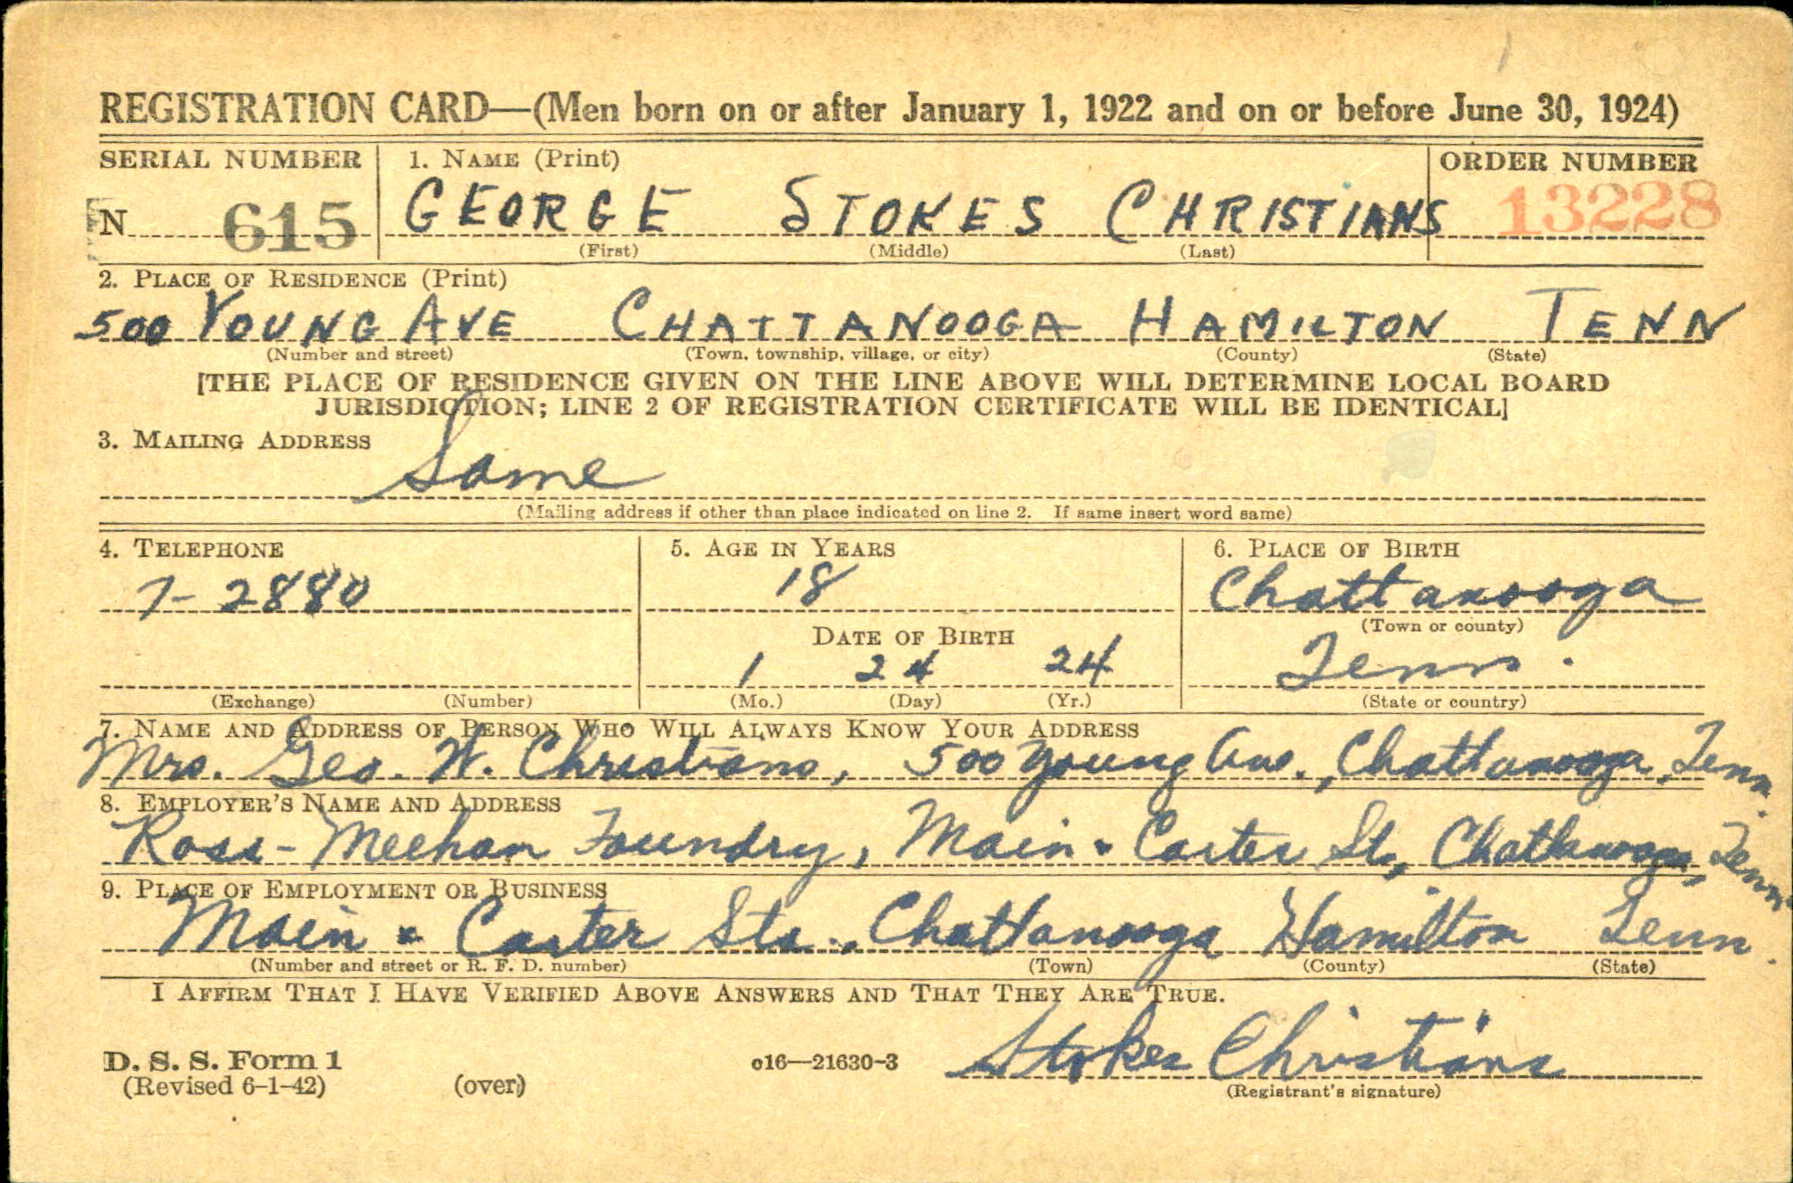 REGISTRATION CARD—(Men born on or after January 1, 1922 and on or before June 30, 1924)
SERIAL NUMBER
1. NAME (Print)
ORDER NUMBER
N 615
GEORGE STOKES CHRISTIANS
13228
(First) (Middle) (Last)
2. PLACE OF RESIDENCE (Print)
500 YOUNG AVE CHATTANOOGA HAMILTON TENN
(Number and street) (Town, township, village, or city) (County) (State)
[THE PLACE OF RESIDENCE GIVEN ON THE LINE ABOVE WILL DETERMINE LOCAL BOARD
JURISDICTION; LINE 2 OF REGISTRATION CERTIFICATE WILL BE IDENTICAL]
3. MAILING ADDRESS
Same
(Mailing address if other than place indicated on line 2. If same insert word same)
4. TELEPHONE
7-2880
(Exchange) (Number)
5. AGE IN YEARS
18
DATE OF BIRTH
1 24 24
(Mo.) (Day) (Yr.)
6. PLACE OF BIRTH
Chattanooga
(Town or county)
Tenn.
(State or country)
7. NAME AND ADDRESS OF PERSON WHO WILL ALWAYS KNOW YOUR ADDRESS
Mrs. Geo. W. Christians, 500 Young Ave., Chattanooga, Tenn.
8. EMPLOYER'S NAME AND ADDRESS
Ross-Meehan Foundry, Main & Carter St., Chattanooga, Tenn.
9. PLACE OF EMPLOYMENT OR BUSINESS
Main & Carter Sts., Chattanooga Hamilton Tenn.
(Number and street or R. F. D. number) (Town) (County) (State)
I AFFIRM THAT I HAVE VERIFIED ABOVE ANSWERS AND THAT THEY ARE TRUE.
Stokes Christians
D. S. S. Form 1
(Revised 6-1-42) (over) c16—21630-3
(Registrant's signature)